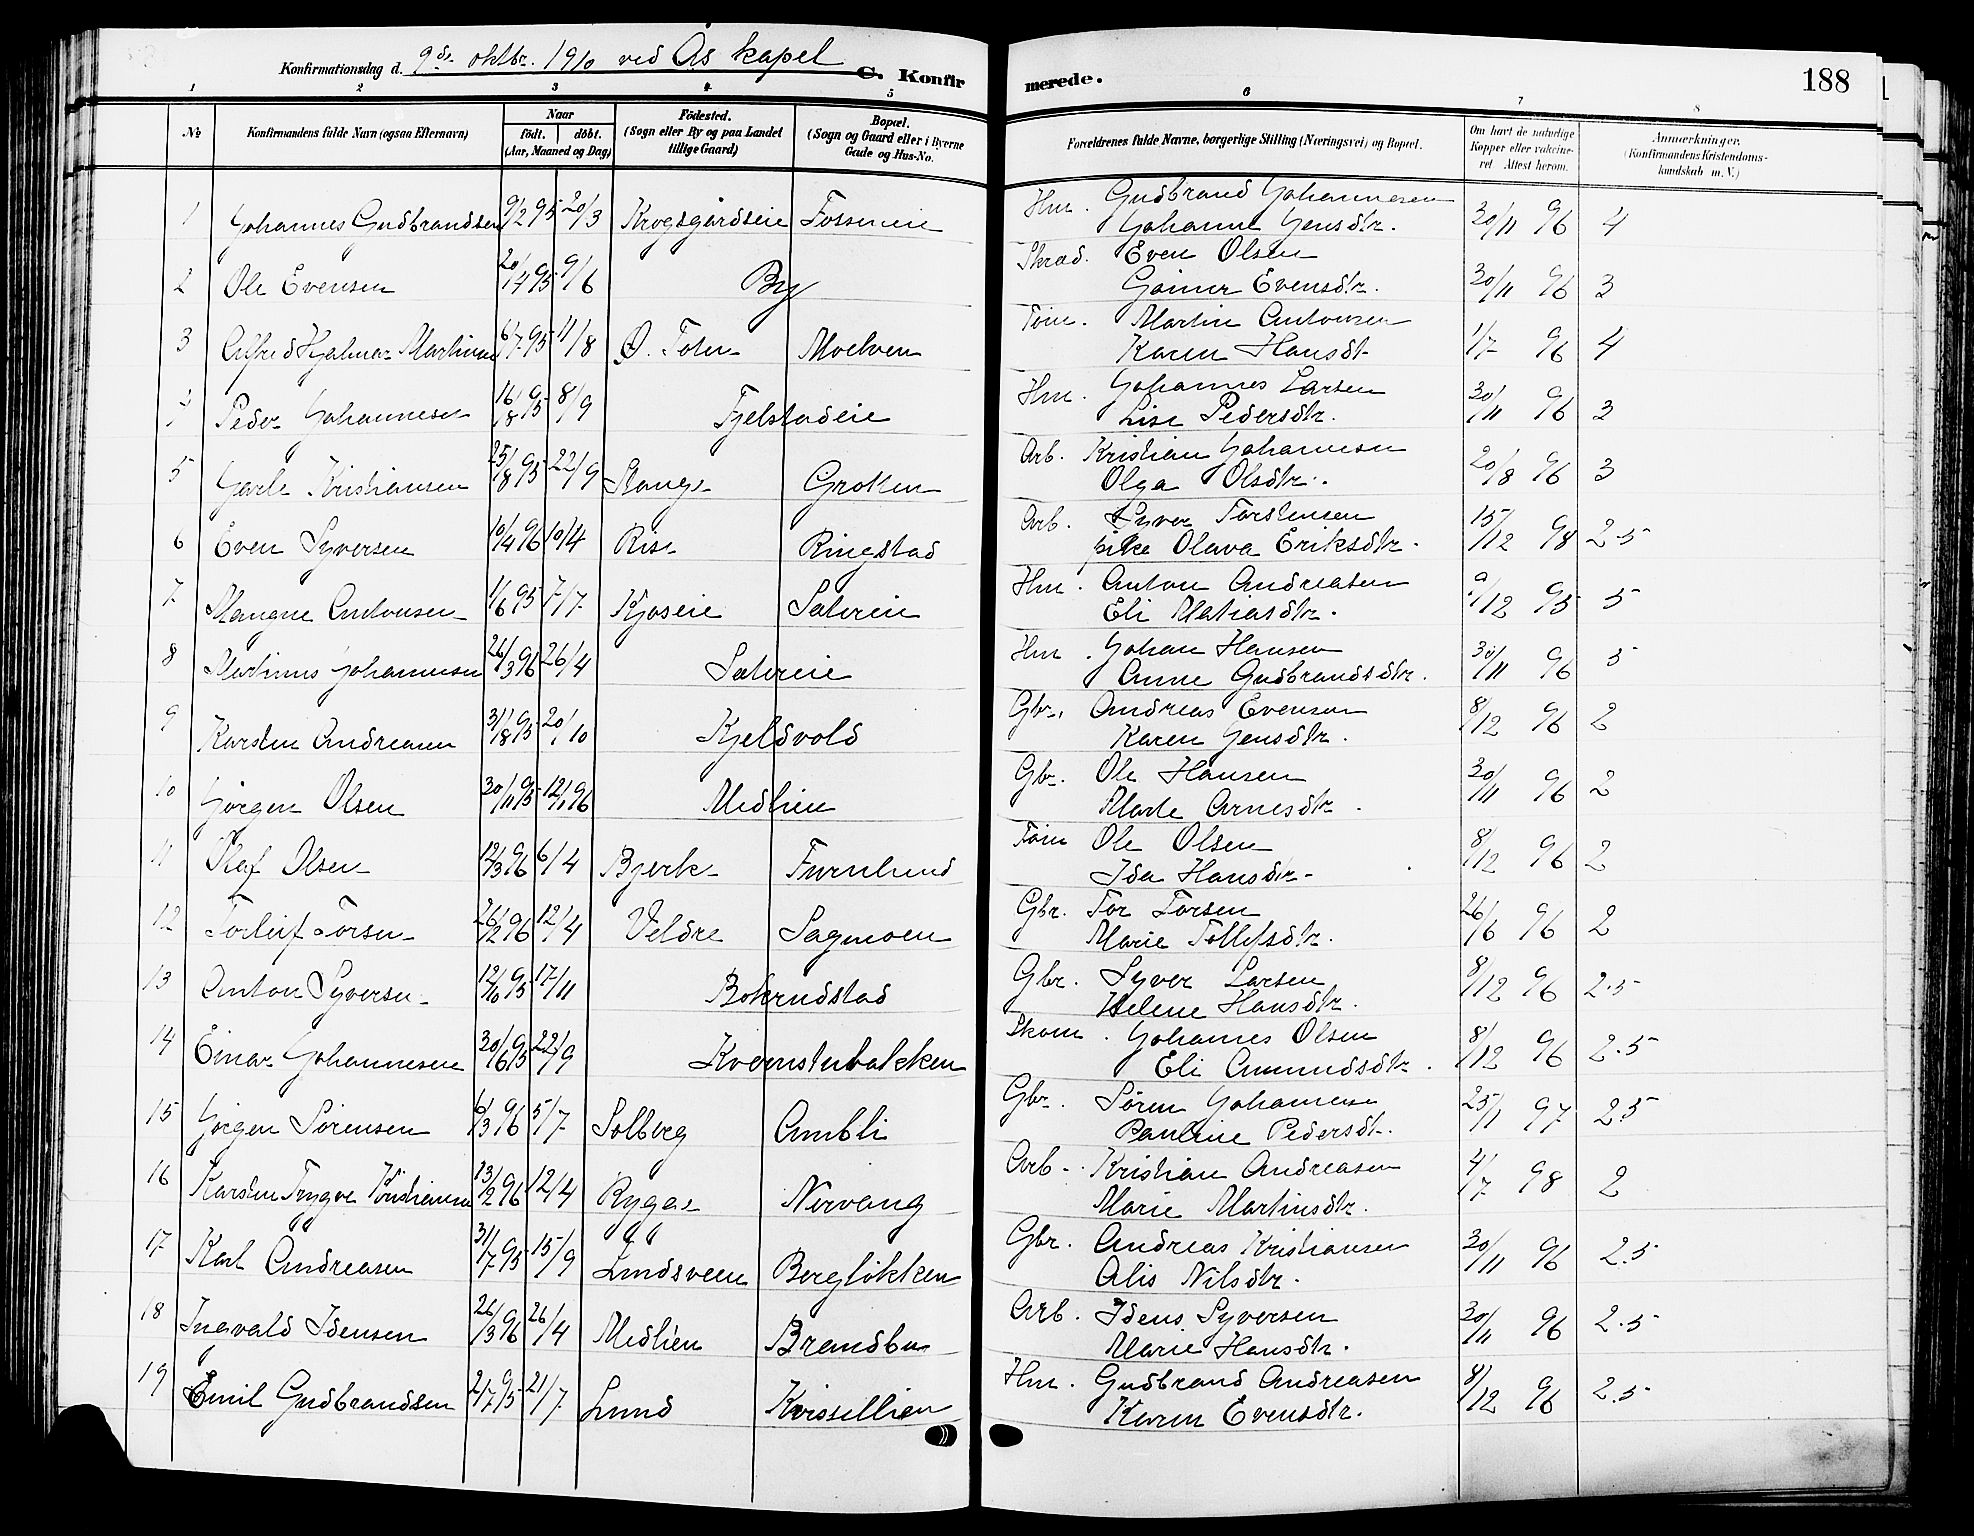 Konfirmationsdag d. 9de oktbr. 1910 ved Ås kapel C. Konfirmerede. 188
1 2 3 4 5 6 7 8
No Konfirmandens fulde Navn (ogsaa Efternavn) Naar født. døbt. (Aar, Maaned og Dag) Fødested. (Sogn eller By og paa Landet tillige Gaard) Bopæl. (Sogn og Gaard eller i Byerne Gade og Hus-No. Forældrenes fulde Navne, borgerlige Stilling (Næringsvei) og Bopæl. Om havt de naturlige Kopper eller vaccineret. Attest herom. Anmerkninger. (Konfirmandens Kristendomskundskab m. V.)
1 Johannes Gudbrandsen 9/2 95 20/3 Krogsgårdseie Fosseneie Hm. Gudbrand Johannesen 30/11 96 4
Johanne Jensdtr.
2 Ole Evensen 20/4 95 9/6 By Skræd. Even Olsen 30/11 96 3
Evensdtr.
3 Alfred Hjalmar Martinsen 6/7 95 11/8 Ø. Toten Moelven Tøm. Martin Antonsen 1/7 96 4
Karen Hansdt
4 Peder Johannesen 16/8 95 8/9 Fjelstadeie Hm. Johannes Larsen 30/11 96 3
Lise Pedersdtr.
5 Jarle Kristiansen 25/8 95 22/9 Stange Groten Arb. Kristian Johannesen 20/8 96 3
Olga Olsdtr.
6 Even Syversen 10/4 96 10/4 Rise Ringstad Arb. Syver Torstensen 15/12 98 2.5
pike Olava Eriksdtr.
7 Magne Antonsen 1/6 95 7/7 Kjoseie Sætereie Hm. Anton Andreasen 9/12 95 5
Eli Matiasdtr.
8 Martinus Johannesen 26/3 96 26/4 Sætereie Hm. Johan Hansen 30/11 96 5
Anne Gudbrandsdtr.
9 Karsten Andreasen 31/8 95 20/10 Kjeldvold Gbr. Andreas Evensen 8/12 96 2
Karen Jensdtr.
10 Jørgen Olsen 30/11 95 12/1 96 Medlien Gbr. Ole Hansen 30/11 96 2
Marte Arnesdtr.
11 Olaf Olsen 12/3 96 6/4 Bjerke Furulund Tøm Ole Olsen 8/12 96 2
Ida Hansdtr.
12 Torleif Torsen 26/2 96 12/4 Veldre Sagmoen Gbr. Tor Torsen 26/6 96 2
Marie Tollefsdtr.
13 Anton Syversen 12/10 95 17/11 Bokrudstad Gbr. Syver Larsen 8/12 96 2.5
Helene Hansdtr.
14 Einar Johannesen 30/6 95 22/9 Kvernstubakken Skom. Johannes Olsen 8/12 96 2.5
Eli Amundsdtr.
15 Jørgen Sørensen 6/3 96 5/7 Solberg Ambli Gbr. Søren Johannesen 25/1 97 2.5
Pauline Pedersdt.
16 Karsten Trygve Kristiansen 13/2 96 12/4 Rygge Nirvang Arb. Kristian Andreasen 4/7 98 2
Marie Martinsdtr.
17 Karl Andreasen 31/7 95 15/9 Lundsveen Bergløkken Gbr. Andreas Kristiansen 30/11 96 2.5
Alis Nilsdtr.
18 Ingvald Idensen 26/3 96 26/4 Medlien Brandbu Arb. Idens Syversen 30/11 96 2.5
Marie Hansdtr.
19 Emil Gudbrandsen 2/7 95 21/7 Lund Kvissellien Hm. Gudbrand Andreasen 8/12 96 2.5
Karen Evensdtr.